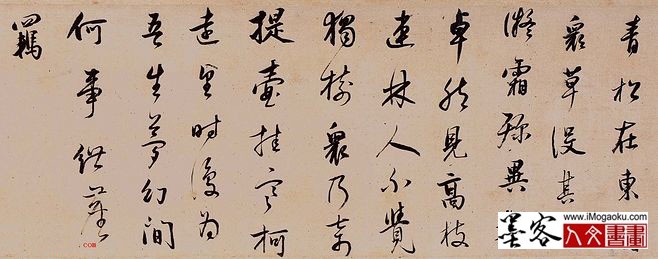 青松在東
衆草没其
凝霜殄異
卓然見高枝
連林人不覺
獨樹衆乃奇
提壺挂寒柯
遠望時復為
吾生夢幻間
何事紲塵
羈
墨客
www.iMogaoku.com
人文書畫
.COM